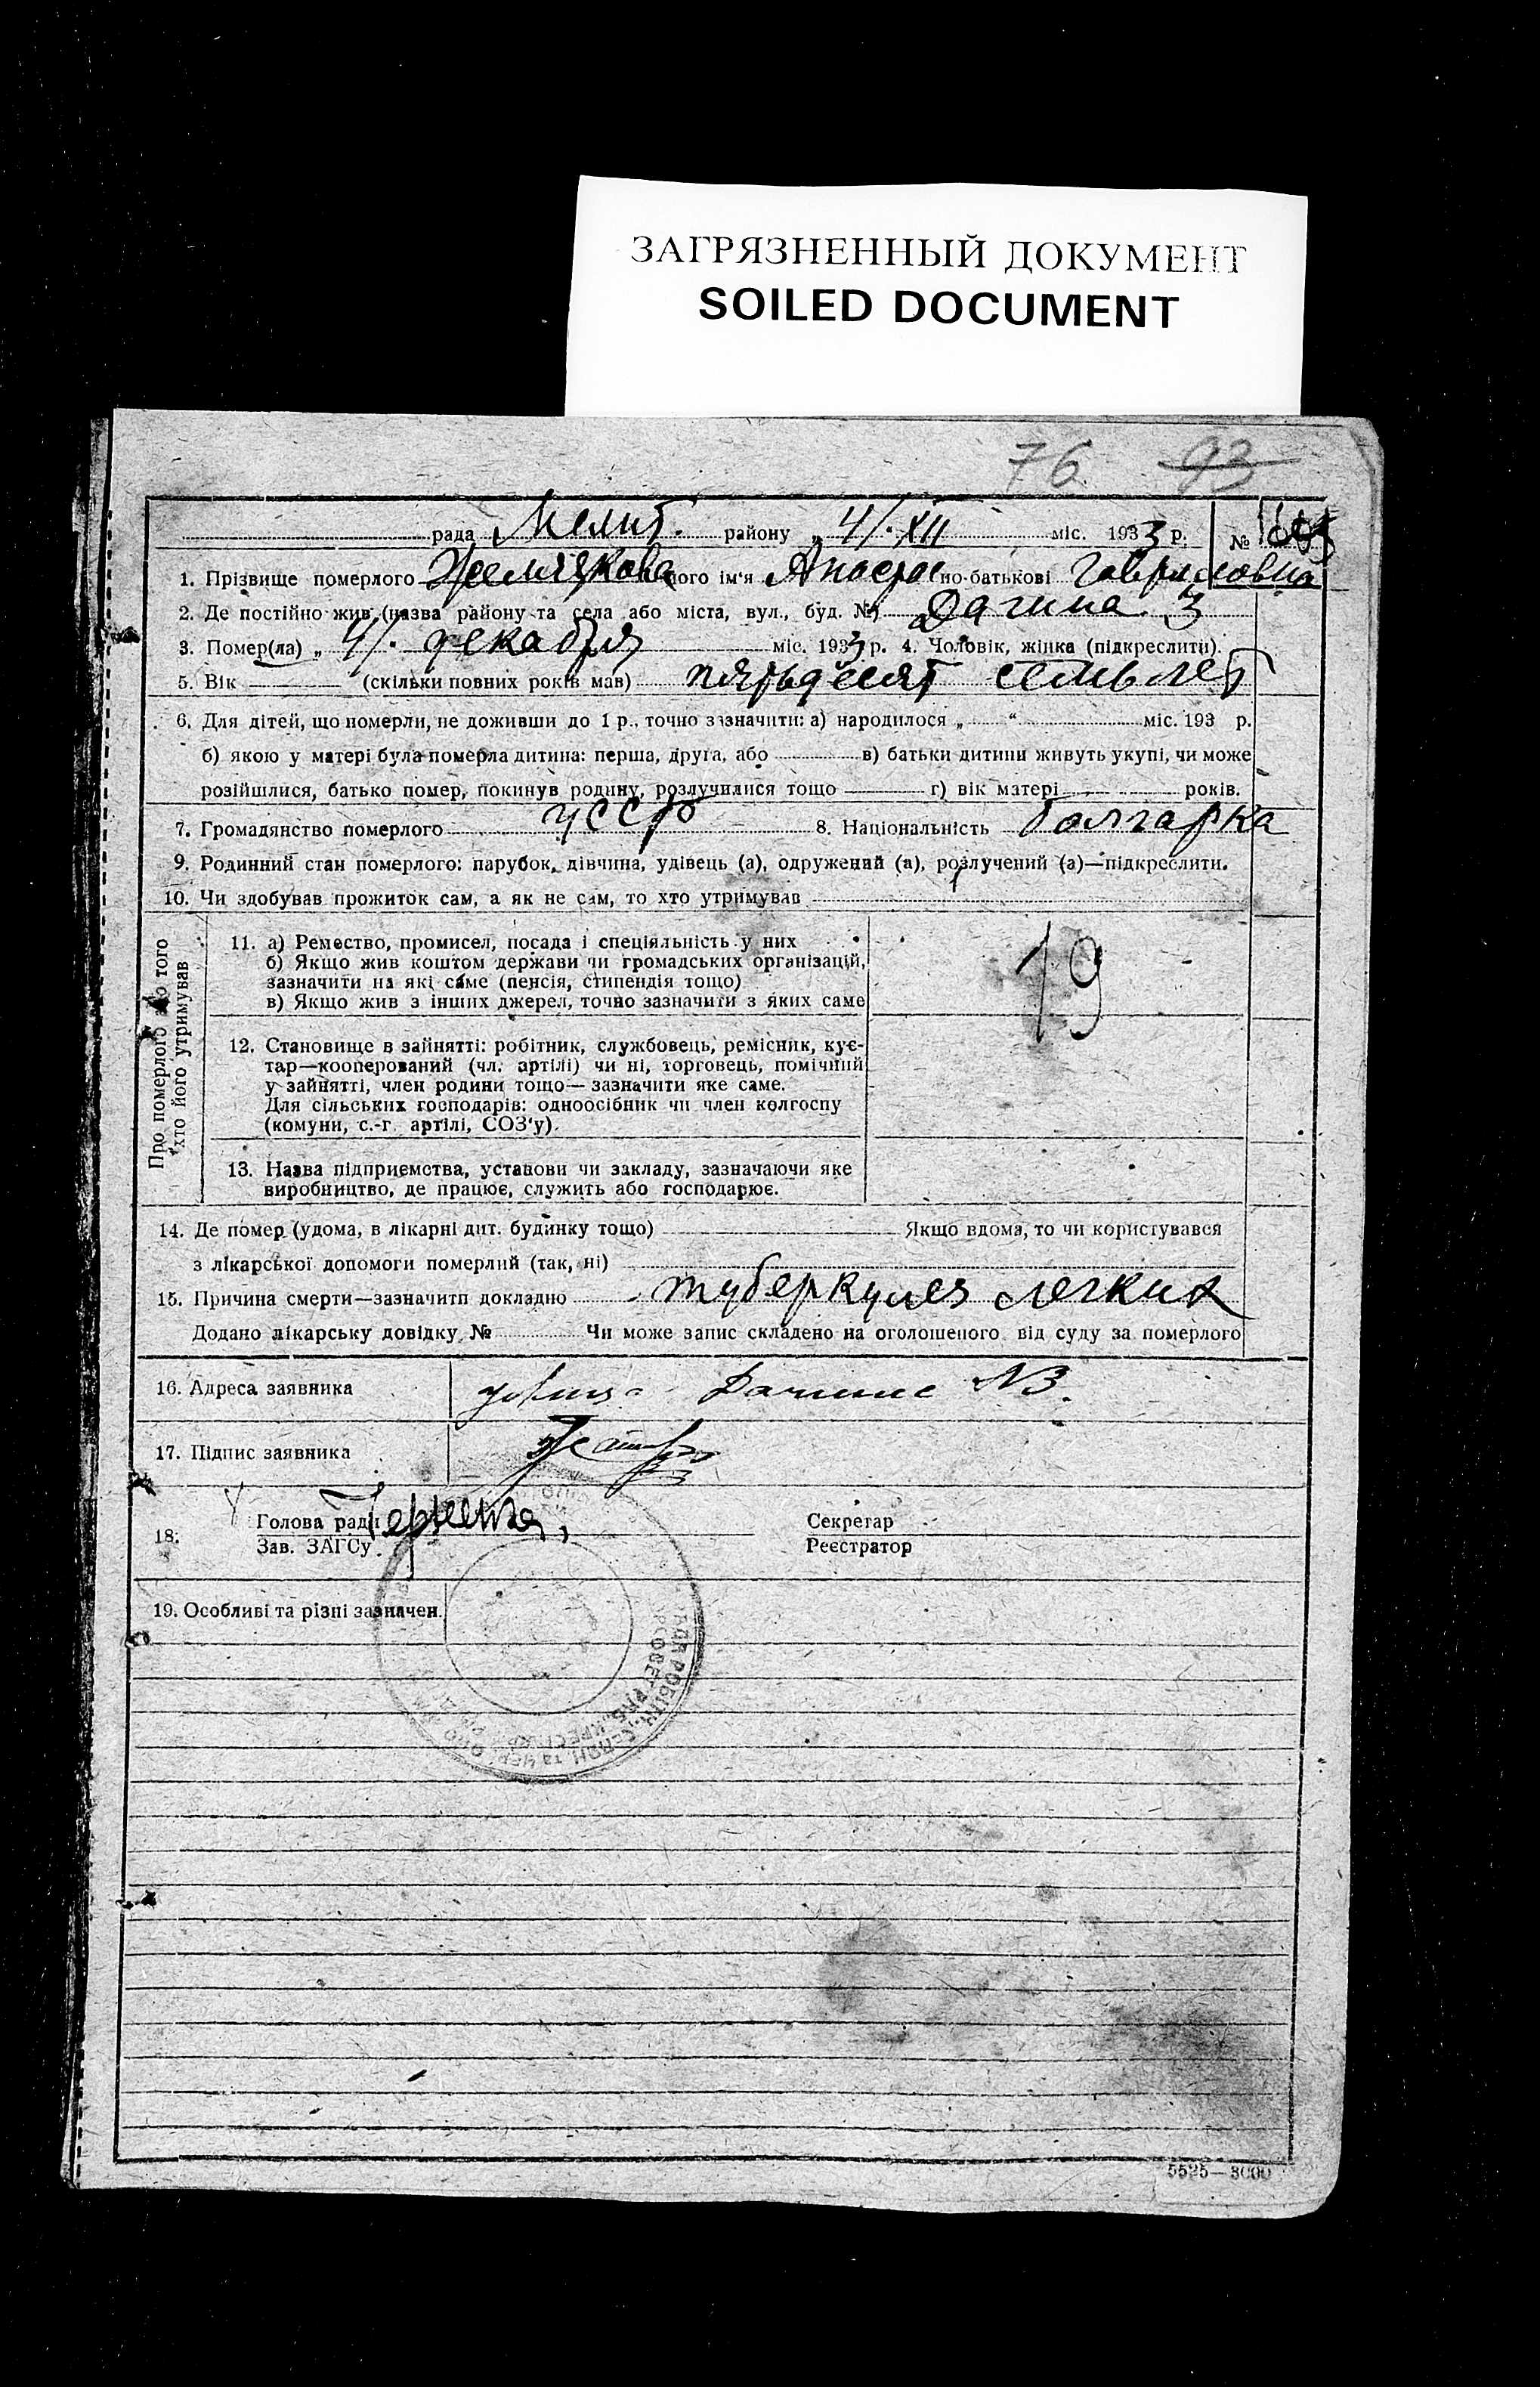 ЗАГРЯЗНЕННЫЙ ДОКУМЕНТ
SOILED DOCUMENT
76 93
рада Мелит. району „ 4/XII міс. 1933 р. №
1. Прізвище померлого його ім'я по-батькові
2. Де постійно жив (назва району та села або міста, вул., буд. №) 3
3. Помер(ла) „ 4/. декабря міс. 1933 р. 4. Чоловік, жінка (підкреслити).
5. Вік (скільки повних років мав) пятьдесят семь лет
6. Для дітей, що померли, не доживши до 1 р., точно зазначити: а) народилося „ “ міс. 193 р.
б) якою у матері була померла дитина: перша, друга, або в) батьки дитини живуть укупі, чи може
розійшлися, батько помер, покинув родину, розлучилися тощо г) вік матері років.
7. Громадянство померлого 8. Національність болгарка
9. Родинний стан померлого: парубок, дівчина, удівець (а), одружений (а), розлучений (а)—підкреслити.
10. Чи здобував прожиток сам, а як не сам, то хто утримував
Про померлого або того
хто його утримував
11. а) Ремество, промисел, посада і спеціяльність у них
б) Якщо жив коштом держави чи громадських організацій,
зазначити на які саме (пенсія, стипендія тощо)
в) Якщо жив з інших джерел, точно зазначити з яких саме
19
12. Становище в зайнятті: робітник, службовець, ремісник, кус-
тар—кооперований (чл. артілі) чи ні, торговець, помічний
у зайнятті, член родини тощо— зазначити яке саме.
Для сільських господарів: одноосібник чи член колгоспу
(комуни, с.-г. артілі, СОЗ'у).
13. Назва підприємства, установи чи закладу, зазначаючи яке
виробництво, де працює, служить або господарює.
14. Де помер (удома, в лікарні дит. будинку тощо) Якщо вдома, то чи користувався
з лікарської допомоги померлий (так, ні)
15. Причина смерти—зазначити докладно туберкулез легких
Додано лікарську довідку № Чи може запис складено на оголошеного від суду за померлого
16. Адреса заявника N3.
17. Підпис заявника
18. Голова ради Секретар
Зав. ЗАГСу Реєстратор
19. Особливі та різні зазначен.
5525—3000